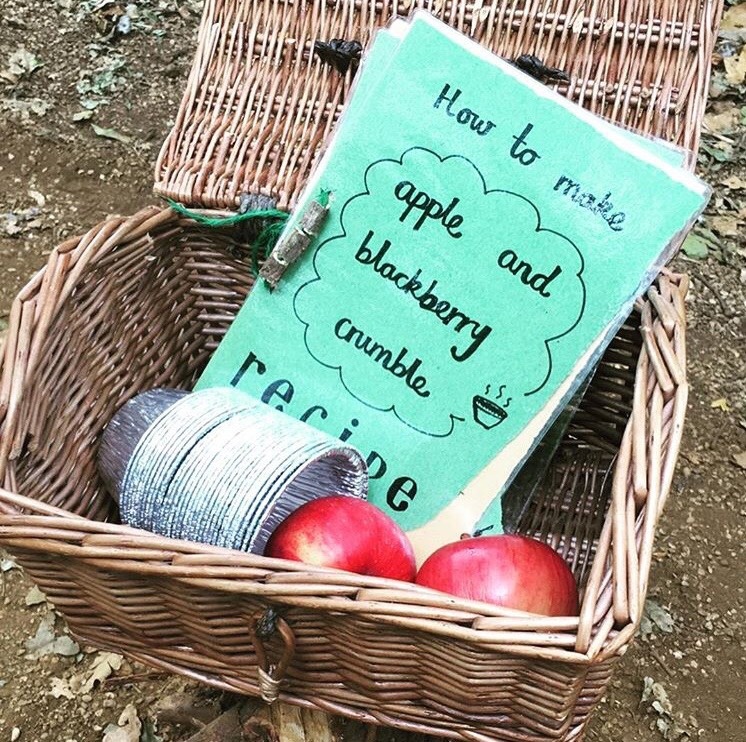 How to make
apple and
blackberry
crumble
recipe